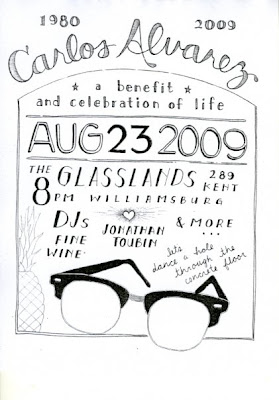 1980 2009
Carlos Alvarez
a benefit
and celebration of life
AUG 23 2009
THE GLASSLANDS 289 KENT
8 PM WILLIAMSBURG
DJs & MORE ...
FINE WINE
JONATHAN TOUBIN
lets
dance a hole
through the
concrete floor